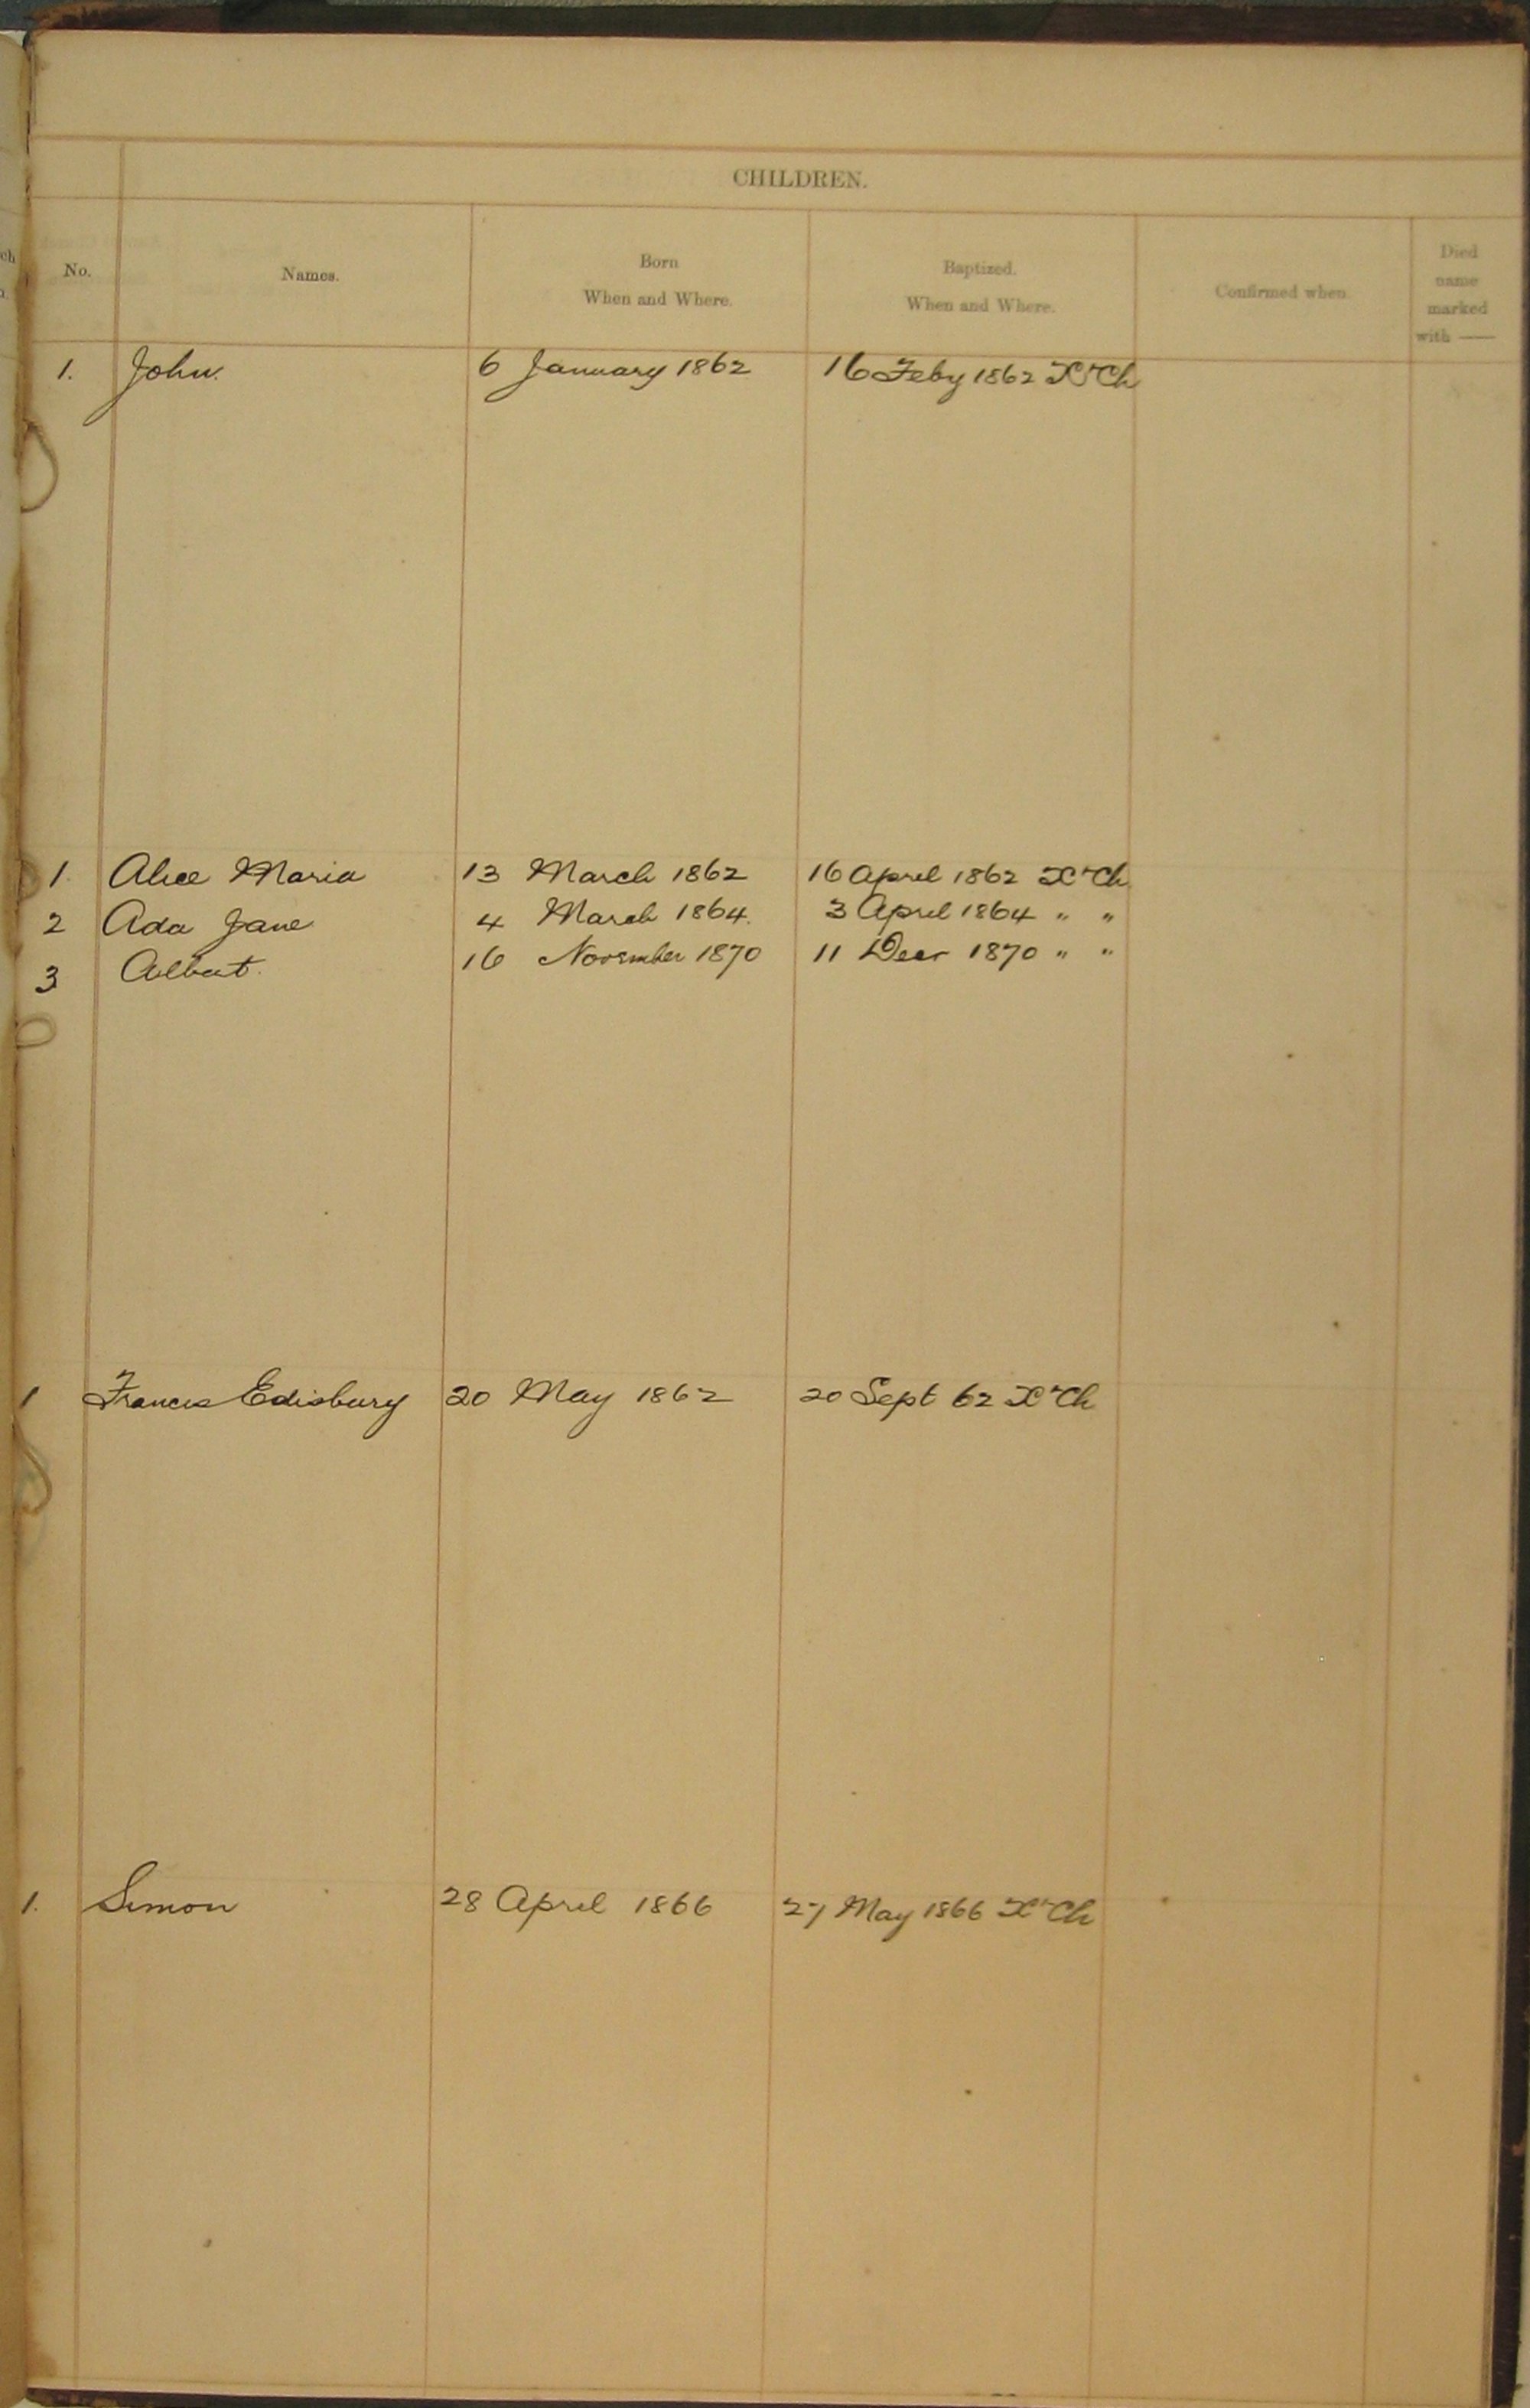 CHILDREN.
No. Names. Born When and Where. Baptized. When and Where. Confirmed when. Died name marked with —
1. John. 6 January 1862 16 Feby 1862 Xt Ch
1 Alice Maria 13 March 1862 16 April 1862 Xt Ch
2 Ada Jane 4 March 1864. 3 April 1864 " "
3 Albert. 16 November 1870 11 Decr 1870 " "
1 Frances Edisbury 20 May 1862 20 Sept 62 Xt Ch
1. Simon 28 April 1866 27 May 1866 Xt Ch